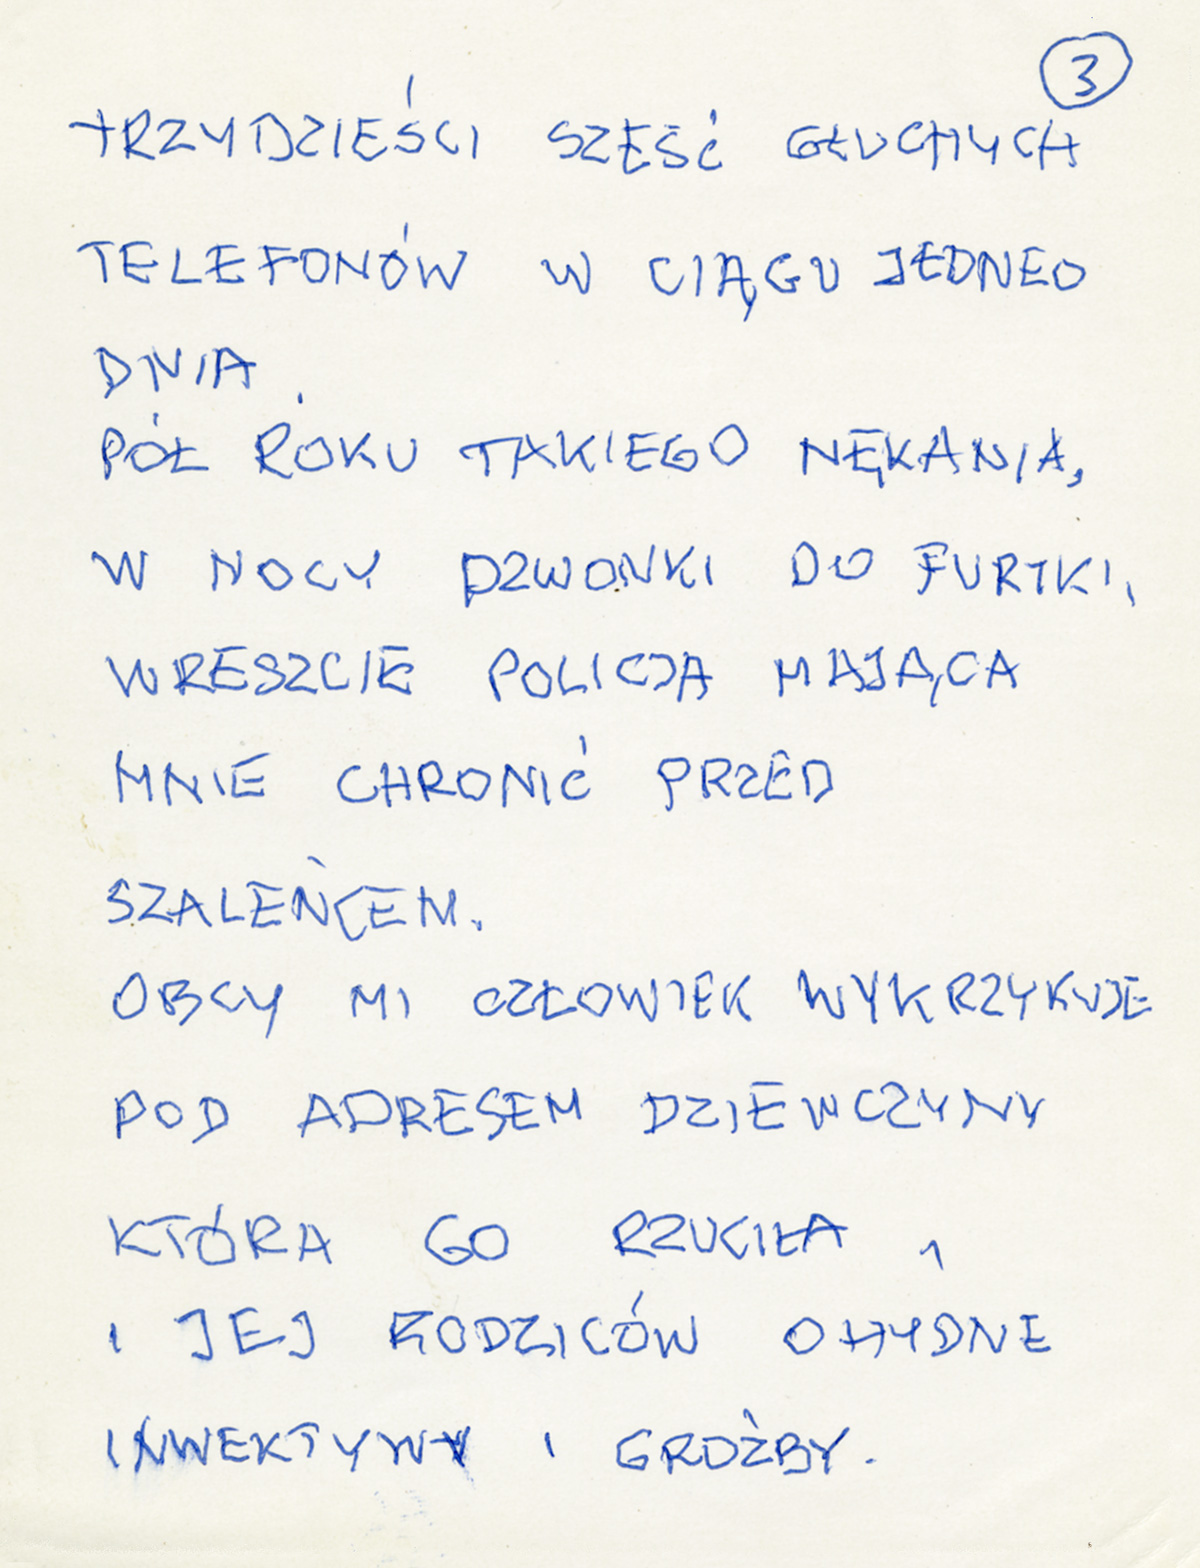 3
TRZYDZIEŚCI SZEŚĆ GŁUCHYCH
TELEFONÓW W CIĄGU JEDNEO
DNIA.
PÓŁ ROKU TAKIEGO NĘKANIA,
W NOCY DZWONKI DO FURTKI,
WRESZCIE POLICJA MAJĄCA
MNIE CHRONIĆ PRZED
SZALEŃCEM.
OBCY MI CZŁOWIEK WYKRZYKUJE
POD ADRESEM DZIEWCZYNY
KTÓRA GO RZUCIŁA,
I JEJ RODZICÓW OHYDNE
INWEKTYWY I GROŹBY.